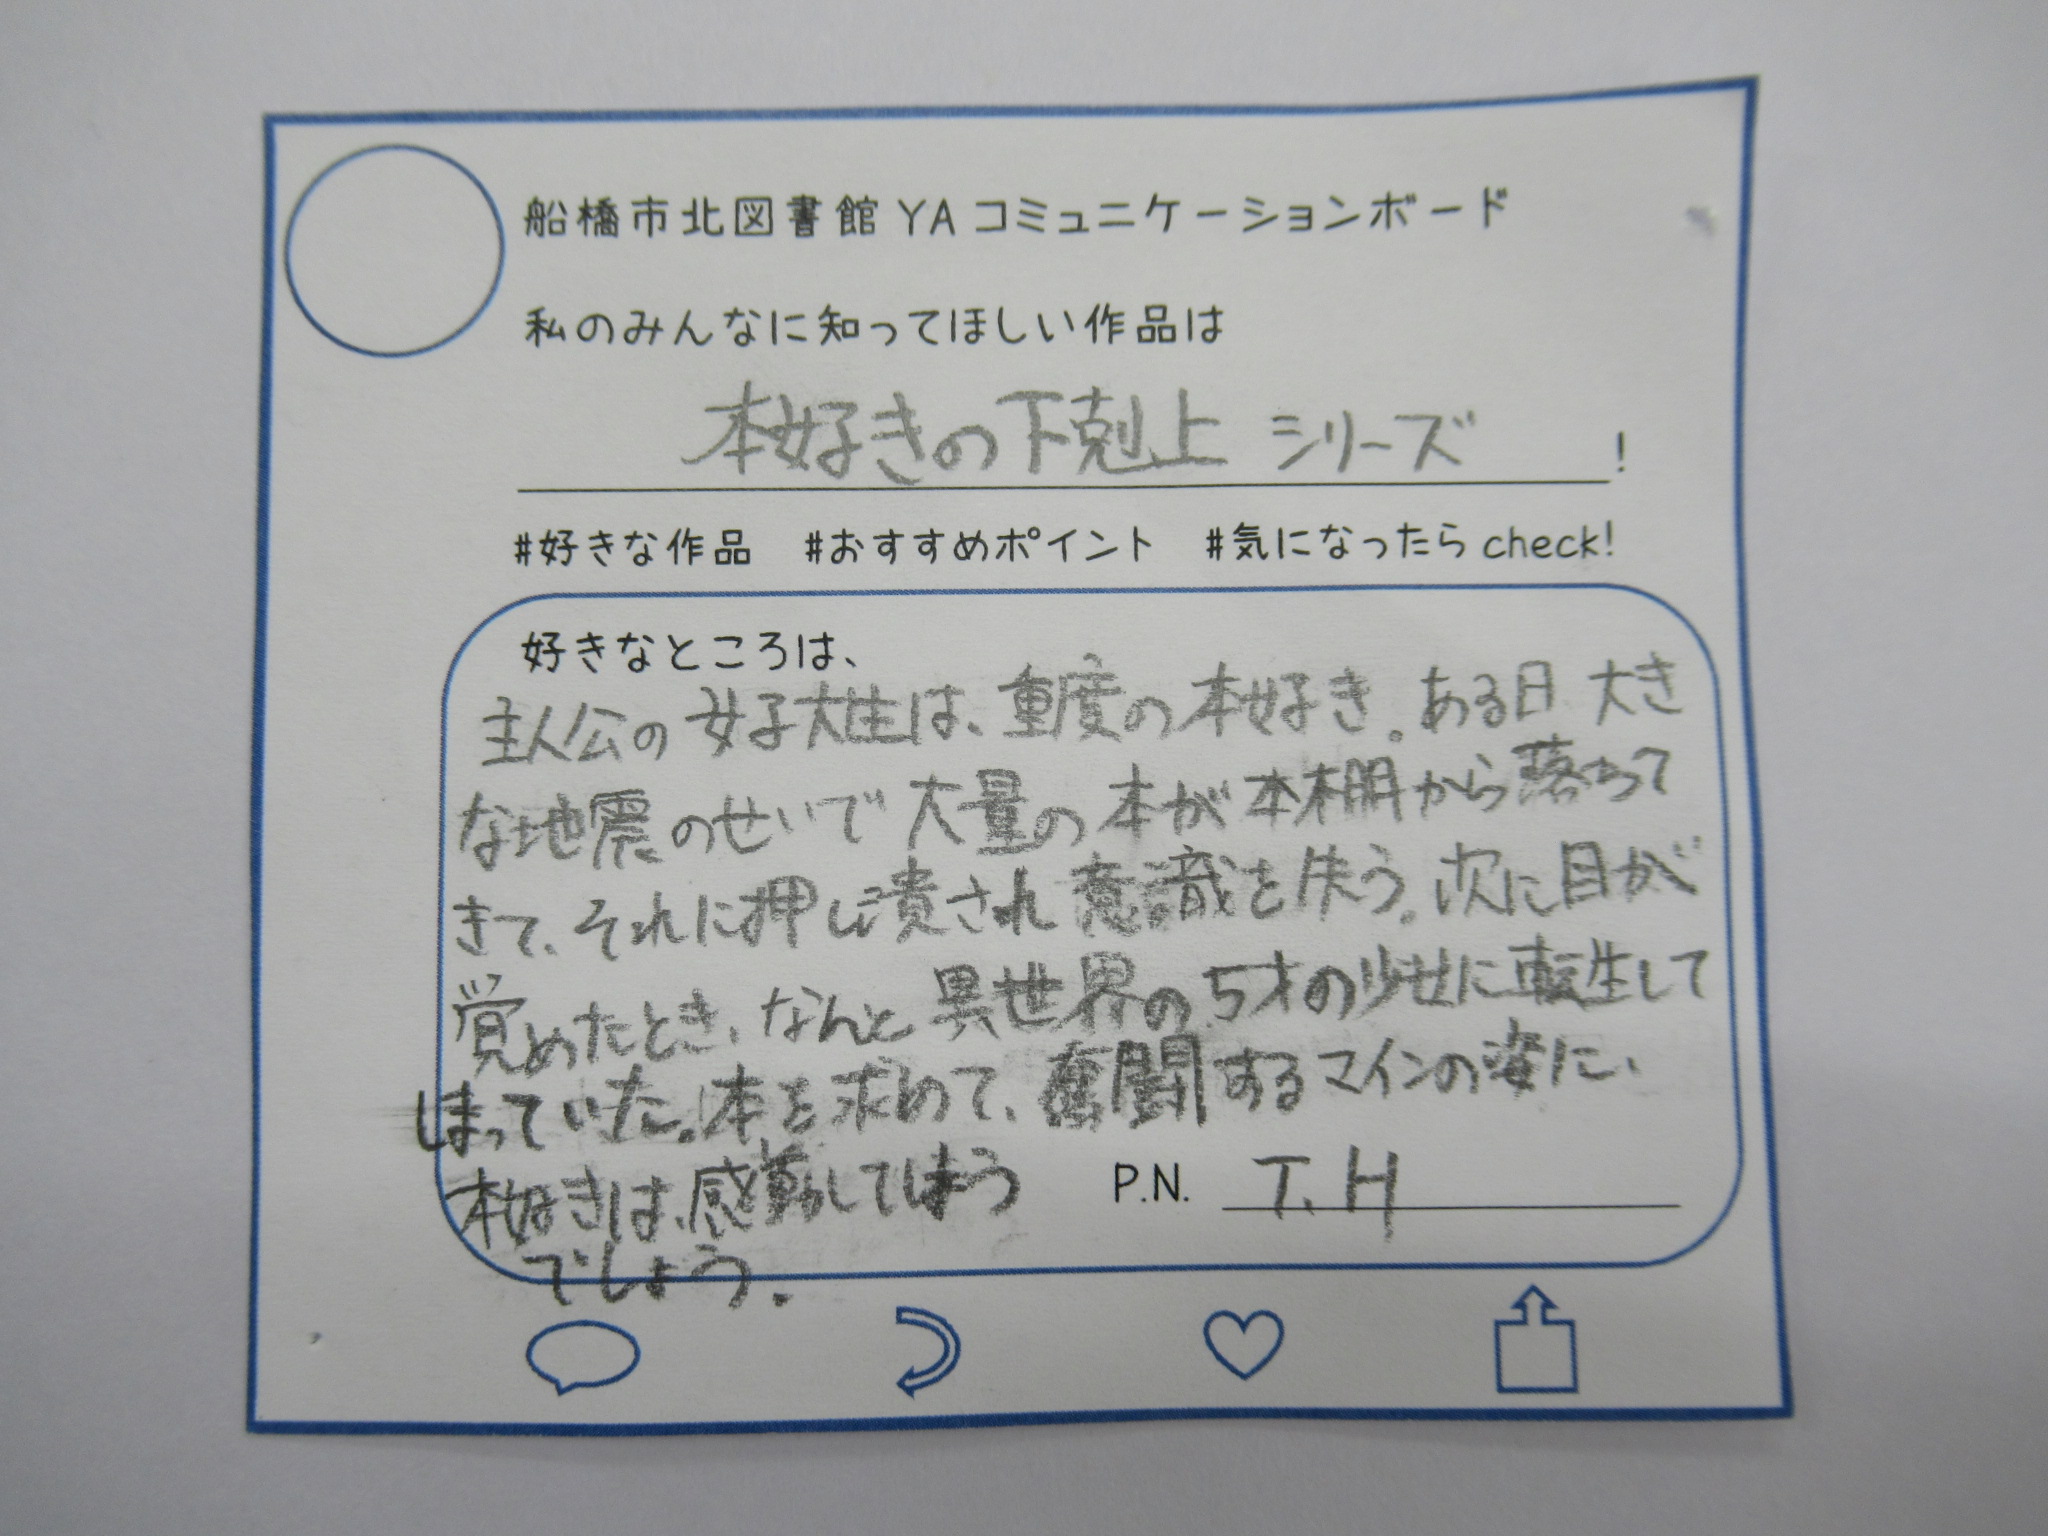 船橋市北図書館 YA コミュニケーションボード
私のみんなに知ってほしい作品は
本好きの下剋上 シリーズ!
#好きな作品 #おすすめポイント #気になったら check!
好きなところは、
主人公の女子大生は、重度の本好き。ある日 大き
な地震のせいで 大量の本が本棚から落ちて
きて、それに押し潰され意識を失う。次に目が
覚めたとき、なんと異世界の5才の少女に転生して
しまっていた。本を求めて、奮闘するマインの姿に、
本好きは、感動してしまう
でしょう。
P.N. T.H